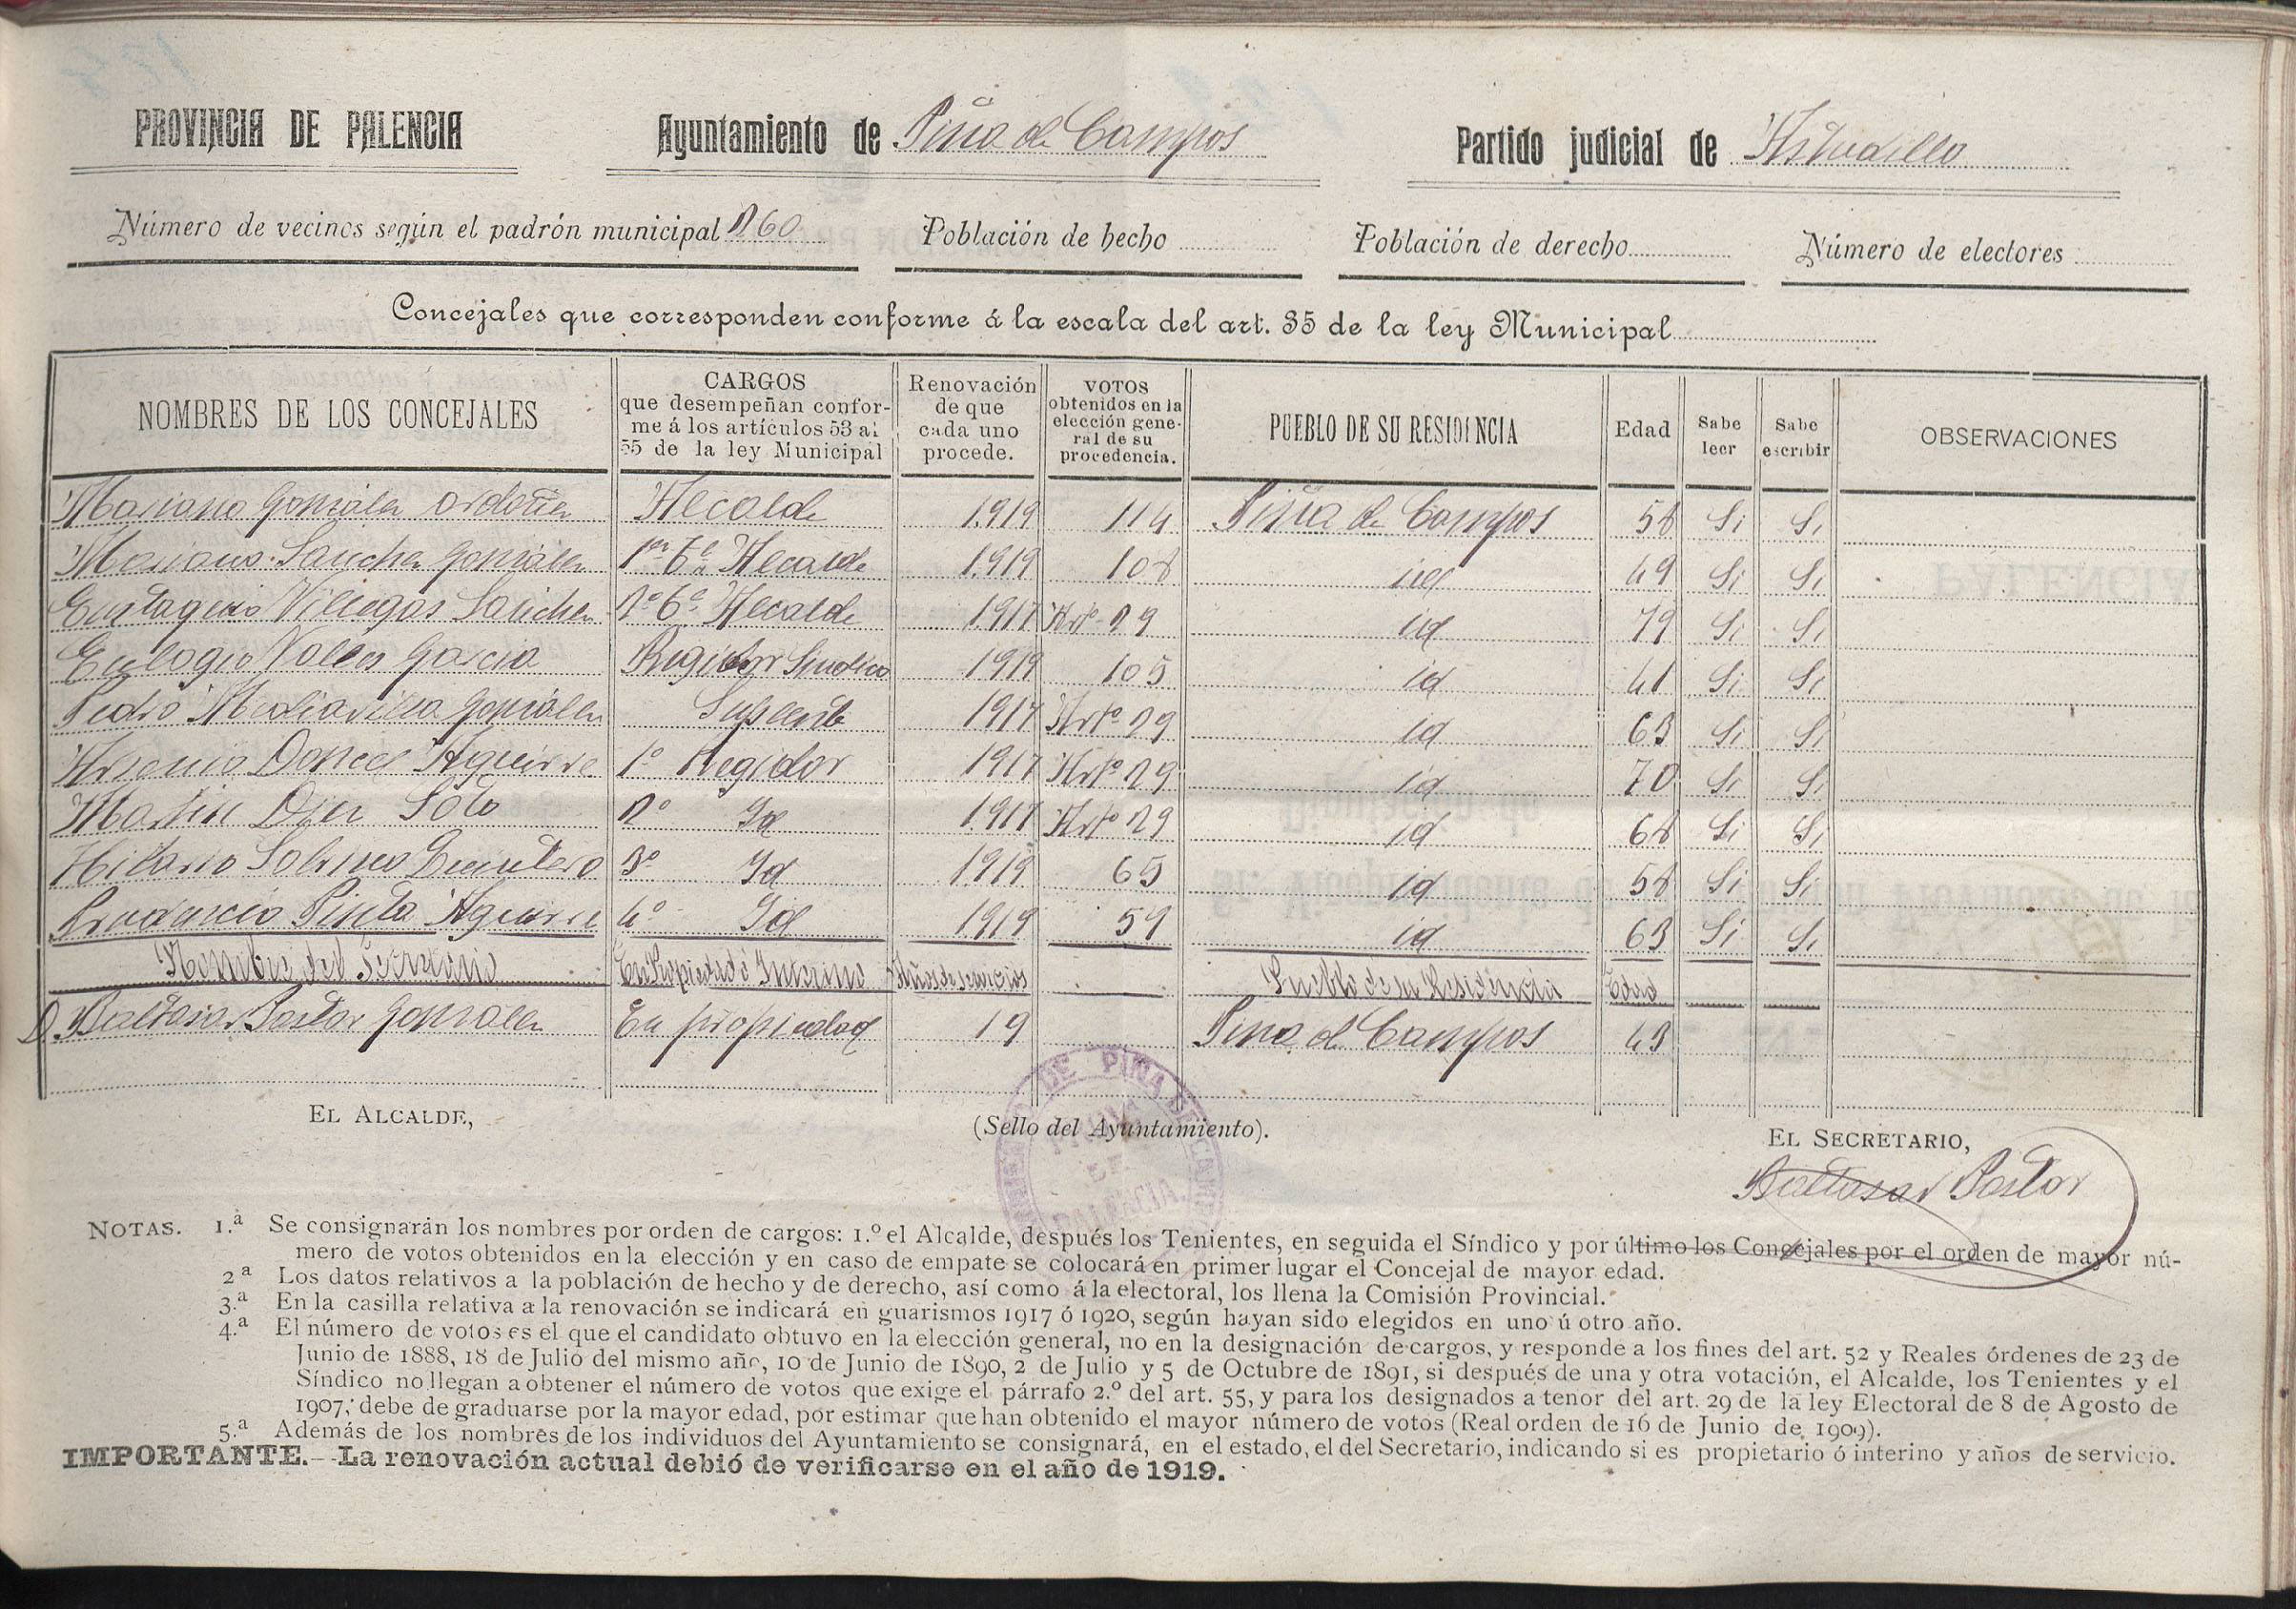 PROVINCIA DE PALENCIA
Ayuntamiento de Piña de Campos
Partido judicial de Astudillo
Número de vecinos según el padrón municipal 260
Población de hecho
Población de derecho
Número de electores
Concejales que corresponden conforme á la escala del art. 35 de la ley Municipal
NOMBRES DE LOS CONCEJALES
CARGOS
que desempeñan confor-
me á los artículos 53 al
55 de la ley Municipal
Renovación
de que
cada uno
procede.
VOTOS
obtenidos en la
elección gene-
ral de su
procedencia.
PUEBLO DE SU RESIDENCIA
Edad
Sabe
leer
Sabe
escribir
OBSERVACIONES
Mariano González Ordoñez Alcalde 1919 114 Piña de Campos 58 Si Si
Mariano Sanchez González 1er Te Alcalde 1919 108 id 49 Si Si
Eustaquio Villegas Sanchez 2º Te Alcalde 1917 Artº 29 id 79 Si Si
Eulogio Valles Garcia Regidor Sindico 1919 105 id 41 Si Si
Pedro Mediavilla González Suplente 1917 Artº 29 id 63 Si Si
Arsenio Doncel Aguirre 1º Regidor 1917 Artº 29 id 70 Si Si
Martin Diez Soto 2º Id 1917 Artº 29 id 68 Si Si
Hilario Sobrino Quintero 3º Id 1919 65 id 58 Si Si
Prudencio Pinta Aguirre 4º Id 1919 59 id 63 Si Si
Nombre del Secretario En Propiedad ó Interino Años de servicios Pueblo de su Residencia Edad
D. Baltasar Pastor González En propiedad 19 Piña de Campos 43
EL ALCALDE,
(Sello del Ayuntamiento).
DE PIÑA DE CAMPOS
PROVª
DE
PALENCIA
EL SECRETARIO,
Baltasar Pastor
NOTAS. 1.ª Se consignarán los nombres por orden de cargos: 1.º el Alcalde, después los Tenientes, en seguida el Síndico y por último los Concejales por el orden de mayor nú-
mero de votos obtenidos en la elección y en caso de empate se colocará en primer lugar el Concejal de mayor edad.
2ª Los datos relativos a la población de hecho y de derecho, así como á la electoral, los llena la Comisión Provincial.
3.ª En la casilla relativa a la renovación se indicará en guarismos 1917 ó 1920, según hayan sido elegidos en uno ú otro año.
4.ª El número de votos es el que el candidato obtuvo en la elección general, no en la designación de cargos, y responde a los fines del art. 52 y Reales órdenes de 23 de
Junio de 1888, 18 de Julio del mismo año, 10 de Junio de 1890, 2 de Julio y 5 de Octubre de 1891, si después de una y otra votación, el Alcalde, los Tenientes y el
Síndico no llegan a obtener el número de votos que exige el párrafo 2.º del art. 55, y para los designados a tenor del art. 29 de la ley Electoral de 8 de Agosto de
1907, debe de graduarse por la mayor edad, por estimar que han obtenido el mayor número de votos (Real orden de 16 de Junio de 1909).
5.ª Además de los nombres de los individuos del Ayuntamiento se consignará, en el estado, el del Secretario, indicando si es propietario ó interino y años de servicio.
IMPORTANTE.--La renovación actual debió de verificarse en el año de 1919.